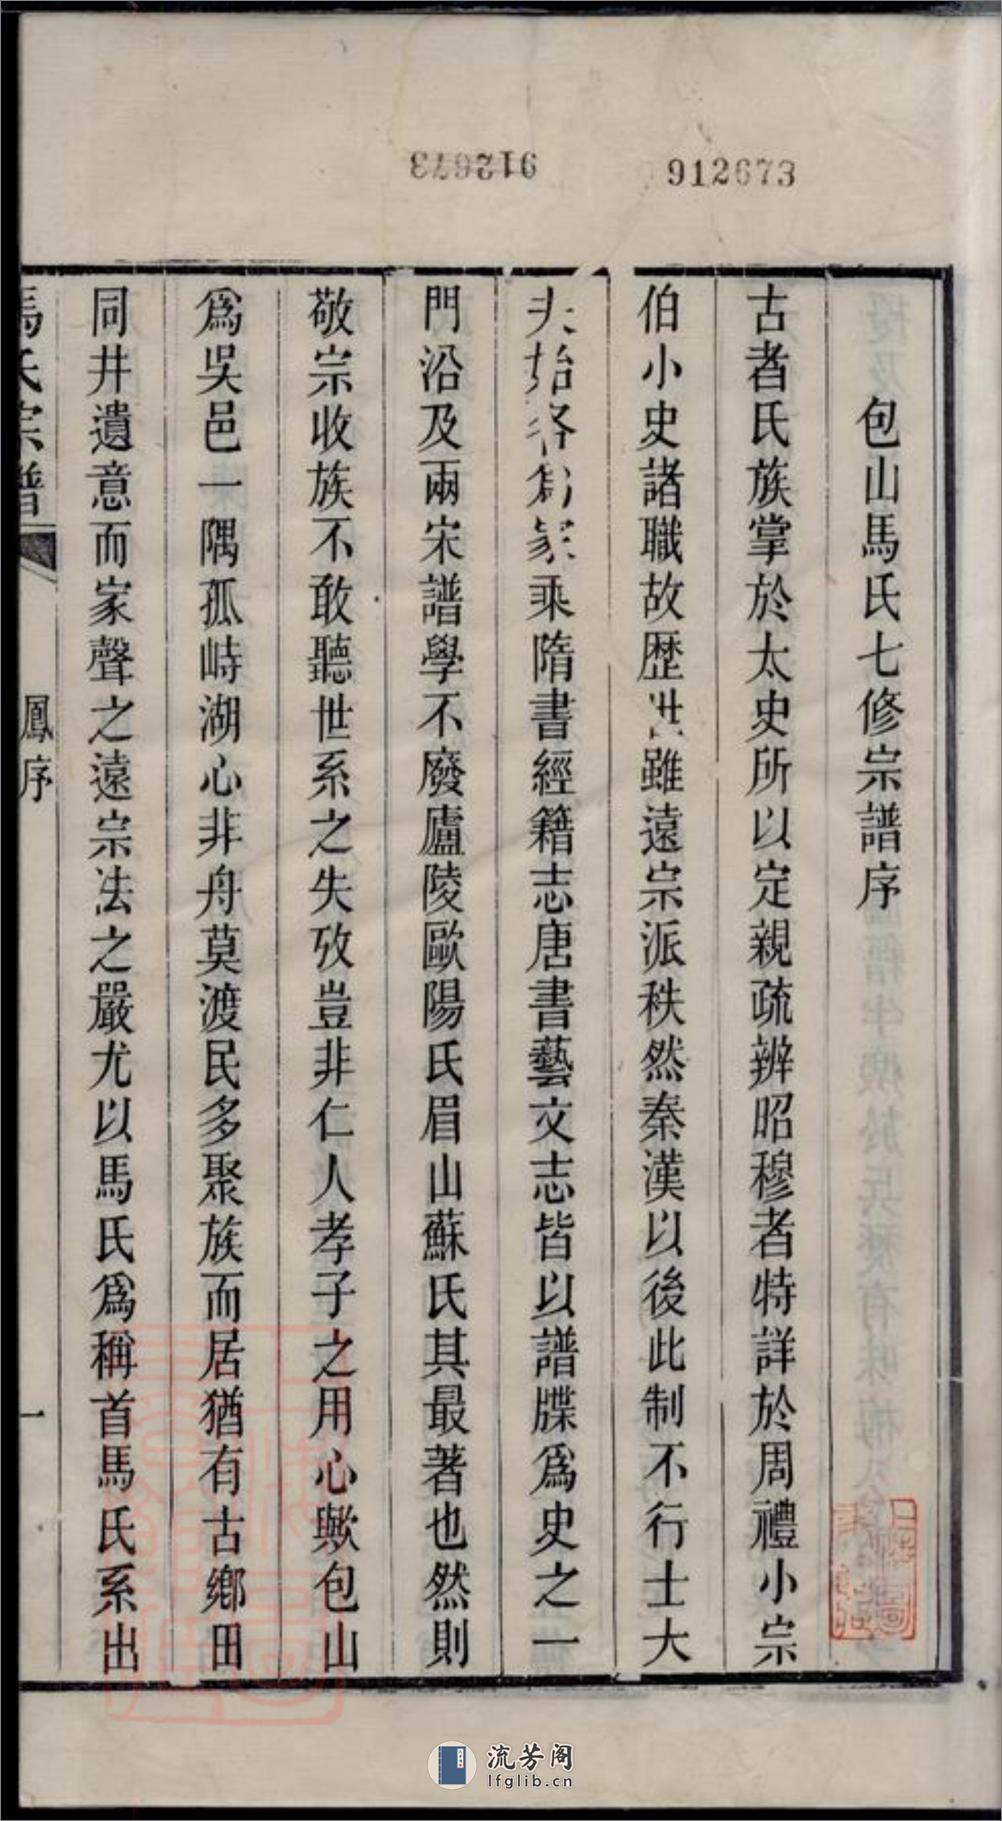 912673
包山馬氏七修宗譜序
古者氏族掌於太史所以定親疏辨昭穆者特詳於周禮小宗
伯小史諸職故歴世雖遠宗派秩然秦漢以後此制不行士大
夫始各爲家乘隋書經籍志唐書藝文志皆以譜牒爲史之一
門沿及兩宋譜學不廢廬陵歐陽氏眉山蘇氏其最著也然則
敬宗收族不敢聽世系之失攷豈非仁人孝子之用心歟包山
爲吳邑一隅孤峙湖心非舟莫渡民多聚族而居猶有古鄉田
同井遺意而家聲之遠宗法之嚴尤以馬氏爲稱首馬氏系出
馬氏宗譜
鳳序
一
流芳阁
lfglib.cn